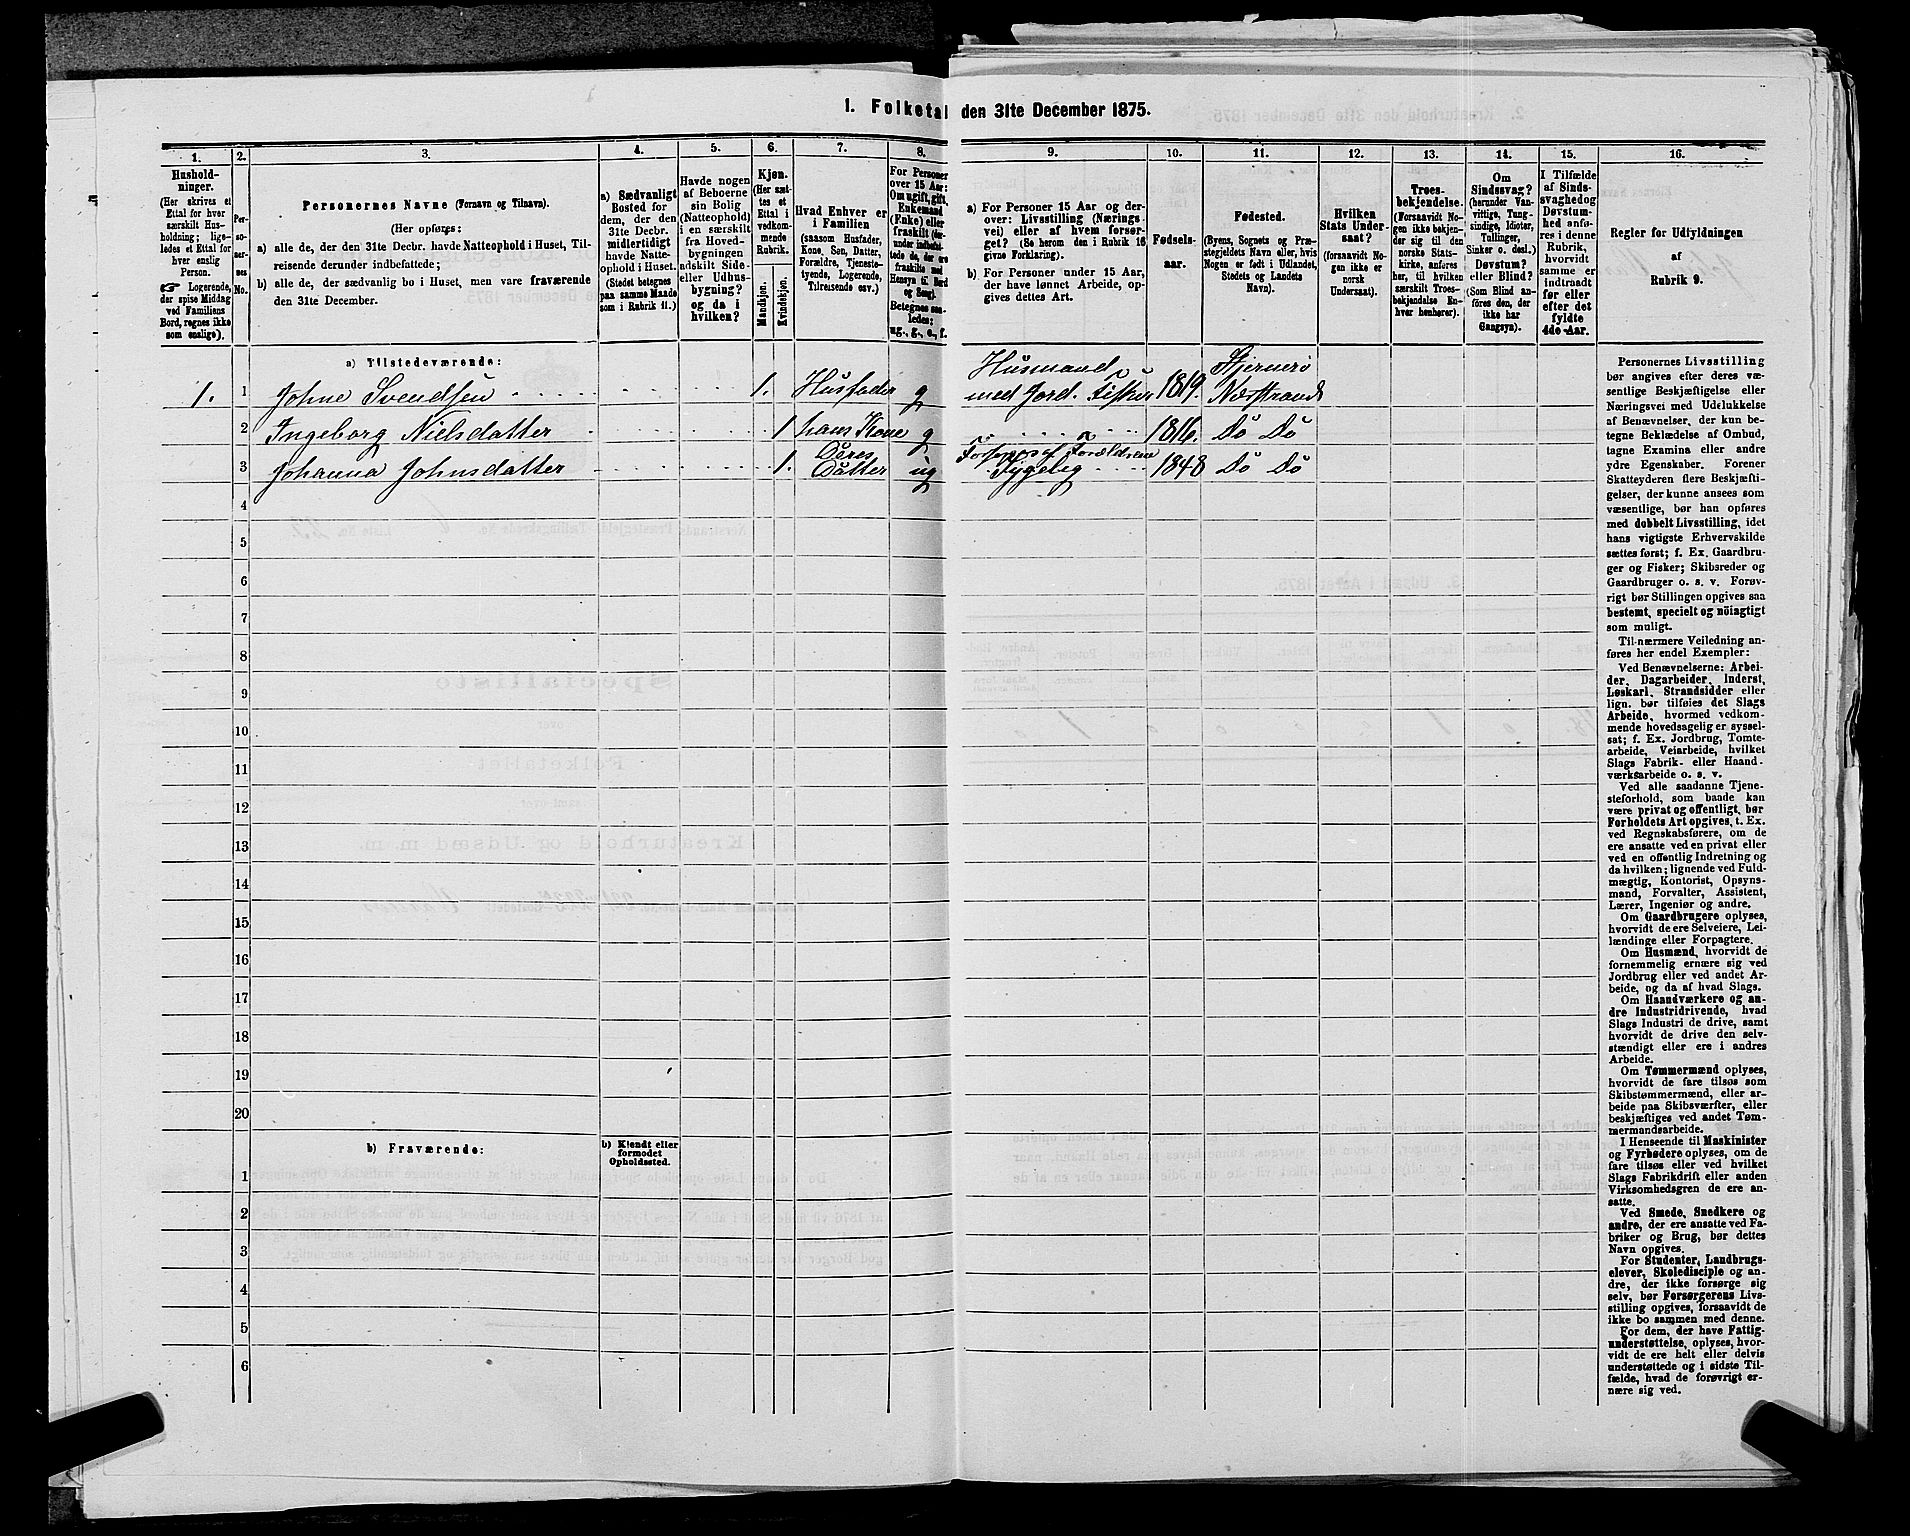 1. Folketal den 31te December 1875.
1.
Hushold-
ninger.
(Her skrives et
Ettal for hver
særskilt Hus-
holdning; lige-
ledes et Ettal for
hver enslig
Person.
Logerende,
der spise Middag
ved Familiens
Bord, regnes ikke
som enslige).
2.
Per-
so-
ner-
nes
No.
3.
Personernes Navne (Fornavn og Tilnavn).
(Her opføres:
a) alle de, der den 31te Decbr. havde Natteophold i Huset, Til-
reisende derunder indbefattede;
b) alle de, der sædvanlig bo i Huset, men vare fraværende
den 31te December.
4.
a) Sædvanligt
Bosted for
dem, der den
31te Decbr.
midlertidigt
havde Natte-
ophold i Huset.
(Stedet betegnes
paa samme Maade
som i Rubrik 11.)
5.
Havde nogen
af Beboerne
sin Bolig
(Natteophold)
i en særskilt
fra Hoved-
bygningen
adskilt Side-
eller Udhus-
bygning?
og da i
hvilken?
6.
Kjøn.
(Her sæt-
tes et
Ettal i
vedkom-
mende
Rubrik.
Mandkjøn.
Kvindekjøn.
7.
Hvad Enhver er
i Familien
(saasom Husfader,
Kone, Søn, Datter,
Forældre, Tjeneste-
tyende, Logerende,
Tilreisende osv.)
8.
For Personer
over 15 Aar:
Om ugift, gift,
Enkemand
(Enke) eller
fraskilt (der-
under indbefat-
tede de, der ere
fraskilte med
Hensyn til Bord
og Seng).
Betegnes saa-
ledes:
ug., g., e., f.
9.
a) For Personer 15 Aar og der-
over: Livsstilling (Nærings-
vei) eller af hvem forsør-
get? (Se herom den i Rubrik 16
givne Forklaring).
b) For Personer under 15 Aar,
der have lønnet Arbeide, op-
gives dettes Art.
10.
Fødsels-
aar.
11.
Fødested.
(Byens, Sognets og Præ-
stegjeldets Navn eller, hvis
Nogen er født i Udlandet,
Stedets og Landets
Navn).
12.
Hvilken
Stats Under-
saat?
(forsaavidt No-
gen ikke er
norsk
Undersaat).
13.
Troes-
bekjendelse.
(Forsaavidt No-
gen ikke bekjen-
der sig til den
norske Stats-
kirke, anføres
her, til hvilken
særskilt Troes-
bekjendelse En-
hver henhører).
14.
Om
Sindssvag?
(herunder Van-
vittige, Tung-
sindige, Idioter,
Tullinger,
Sinker o. desl.)
Døvstum?
eller Blind?
(Som Blind an-
føres den, der
ikke har
Gangsyn).
15.
I Tilfælde
af Sinds-
svaghed og
Døvstum-
hed anfø-
res i denne
Rubrik,
hvorvidt
samme er
indtraadt
før eller
efter det
fyldte
4de Aar.
16.
Regler for Udfyldningen
af
Rubrik 9.
a) Tilstedeværende:
1. 1 Johne Svendsen 1. Husfader g Husmand med Jord. Fisker 1819. Hjernerö Næsstrand
2 Ingeborg Nielsdatter 1 hans Kone g 1816. Do Do
3 Johanna Johnsdatter 1. Deres Datter ug Forsørges af Forældrene Sygelig 1848 Do Do
4
5
6
7
8
9
10
11
12
13
14
15
16
17
18
19
20
b) Fraværende:
b) Kjendt eller
formodet
Opholdssted.
1
2
3
4
5
6
Personernes Livsstilling
bør angives efter deres væ-
sentlige Beskjæftigelse eller
Næringsvei med Udelukkelse
af Benævnelser, der kun be-
tegne Beklædelse af Ombud,
tagne Examina eller andre
ydre Egenskaber. Forener
Skatteyderen flere Beskjæfti-
gelser, der kunne ansees som
væsentlige, bør han opføres
med dobbelt Livsstilling, idet
hans vigtigste Erhvervskilde
sættes først; f. Ex. Gaardbru-
ger og Fisker; Skibsreder og
Gaardbruger o. s. v. Forøv-
rigt bør Stillingen opgives saa
bestemt, specielt og nöiagtigt
som muligt.
Til nærmere Veiledning an-
føres her endel Exempler:
Ved Benævnelserne: Arbei-
der, Dagarbeider, Inderst,
Løskarl, Strandsidder eller
lign. bør tilføies det Slags
Arbeide, hvormed vedkom-
mende hovedsagelig er syssel-
sat; f. Ex. Jordbrug, Tomte-
arbeide, Veiarbeide, hvilket
Slags Fabrik- eller Haand-
værksarbeide o. s. v.
Ved alle saadanne Tjene-
steforhold, som baade kan
være privat og offentligt, bør
Forholdets Art opgives, t. Ex.
ved Regnskabsførere, om de
ere ansatte ved en privat eller
ved en offentlig Indretning og
da hvilken; lignende ved Fuld-
mægtig, Kontorist, Opsyns-
mand, Forvalter, Assistent,
Lærer, Ingeniør og andre.
Om Gaardbrugere oplyses,
hvorvidt de ere Selveiere, Lei-
lændinge eller Forpagtere.
Om Husmænd, hvorvidt de
fornemmelig ernære sig ved
Jordbrug eller ved andet Ar-
beide, og da af hvad Slags.
Om Haandværkere og an-
dre Industridrivende, hvad
Slags Industri de drive, samt
hvorvidt de drive den selv-
stændigt eller ere i andres
Arbeide.
Om Tømmermænd oplyses,
hvorvidt de fare tilsøs som
Skibstømmermænd, eller ar-
beide paa Skibsværfter, eller
beskjæftiges ved andet Tøm-
mermandsarbeide.
I Henseende til Maskinister
og Fyrbødere oplyses, om de
fare tilsøs eller ved hvilket
Slags Fabrikdrift eller anden
Virksomhedsgren de ere an-
satte.
Ved Smede, Snedkere og
andre, der ere ansatte ved Fa-
briker og Brug, bør dettes
Navn opgives.
For Studenter, Landbrugs-
elever, Skoledisciple og an-
dre, der ikke forsørge sig
selv, bør Forsørgerens Livs-
stilling opgives, forsaavidt de
ikke bo sammen med denne.
For dem, der have Fattig-
understøttelse, oplyses, hvor-
vidt de ere helt eller delvis
understøttede og i sidste Til-
fælde, hvad de forøvrigt er-
nære sig ved.